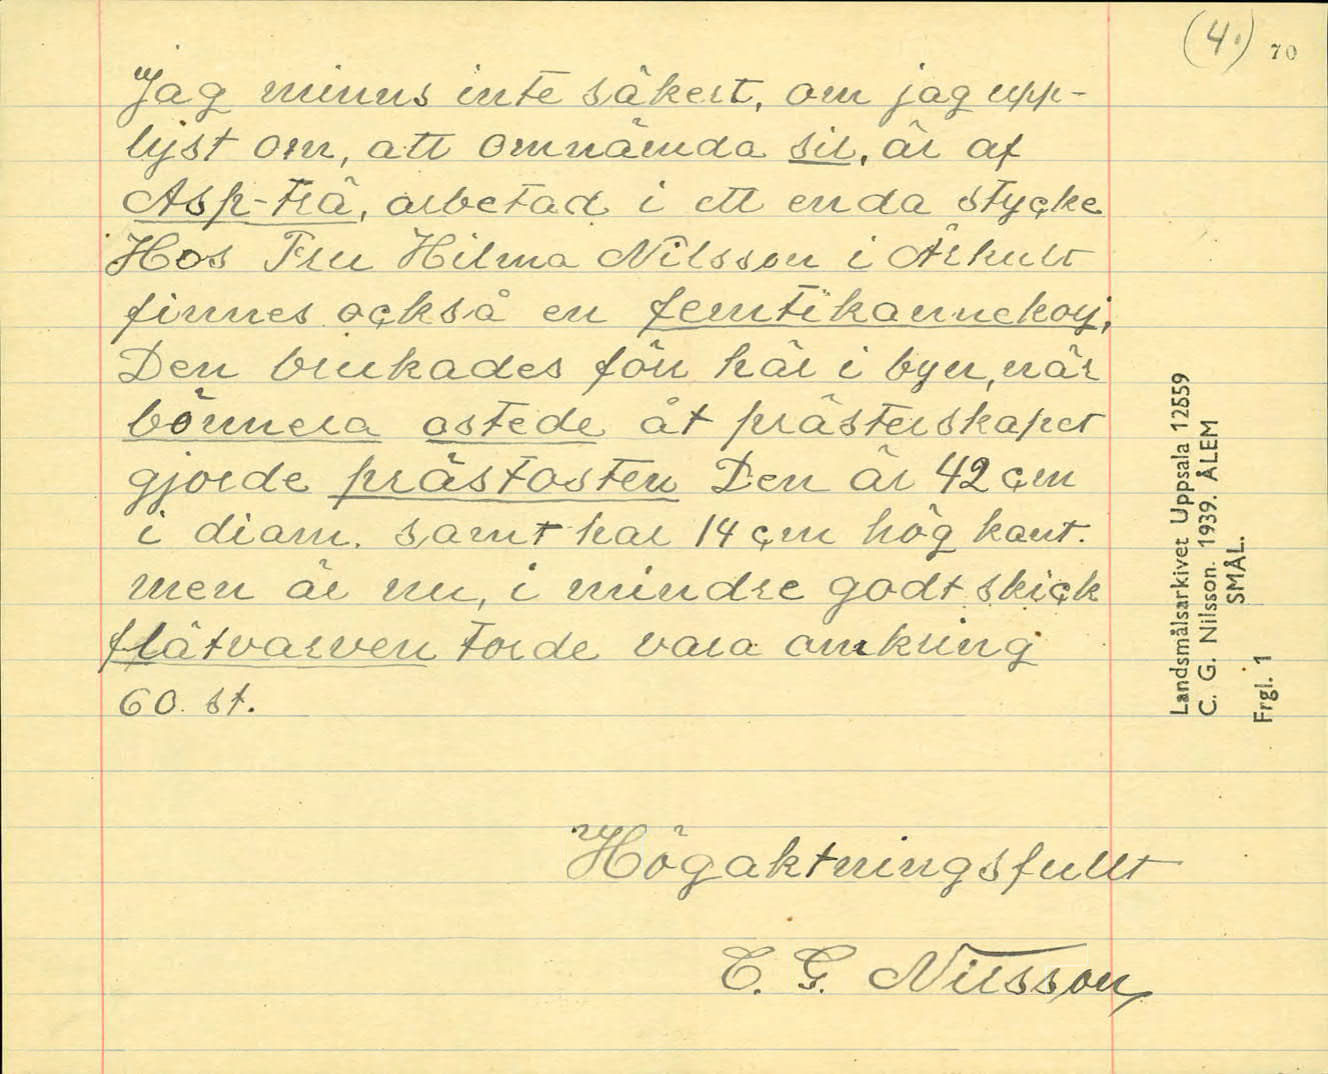 (4.) 70
Jag minns inte säkert, om jag upp-
lyst om, att omnämda sil, är af
Asp-trä, arbetad i ett enda stycke
Hos Fru Hilma Nilsson i Århult
finnes också en femtikannekorj,
Den brukades förr här i byn, när
bönnera ostede åt prästerskapet
gjorde prästosten Den är 42 cm
i diam. samt har 14 cm hög kant.
men är nu, i mindre godt skick
flätvarven torde vara omkring
60. st.
Högaktningsfullt
C. G. Nilsson
Landsmålsarkivet Uppsala 12559
C. G. Nilsson. 1939. ÅLEM
SMÅL.
Frgl. 1